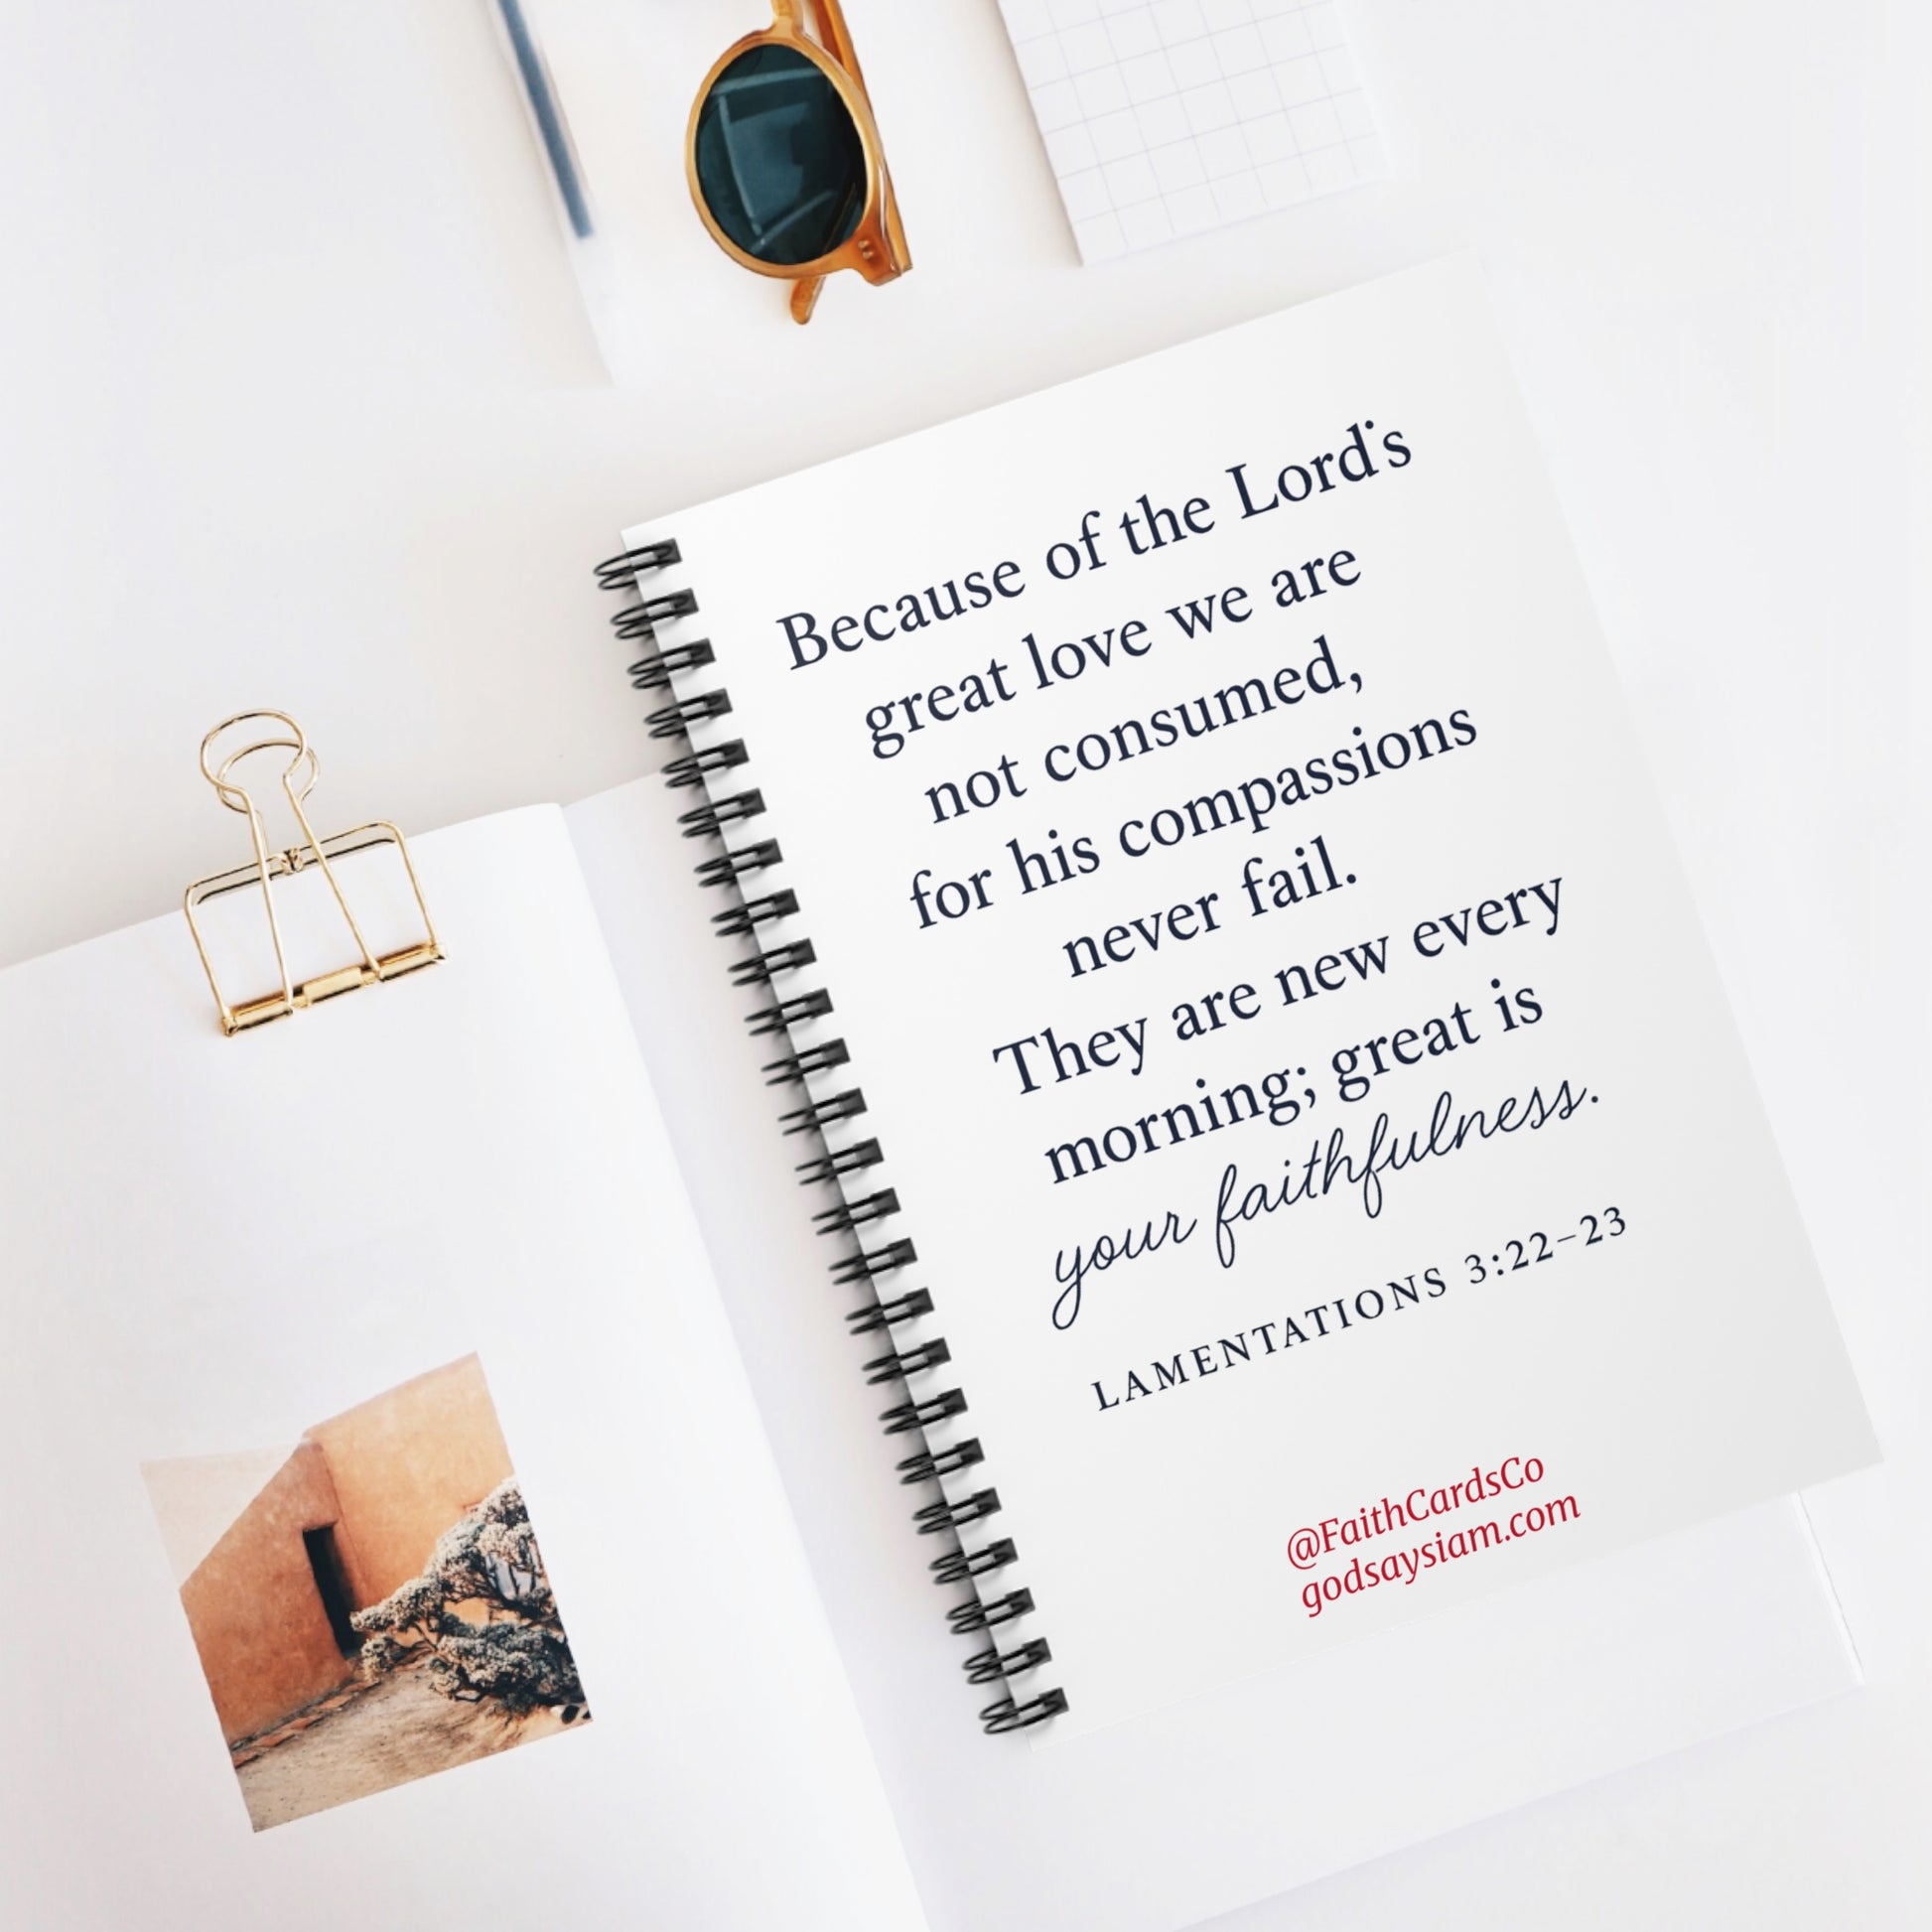 Because of the Lord's
great love we are
not consumed,
for his compassions
never fail.
They are new every
morning; great is
your faithfulness.
LAMENTATIONS 3:22–23
@FaithCardsCo
godsaysiam.com